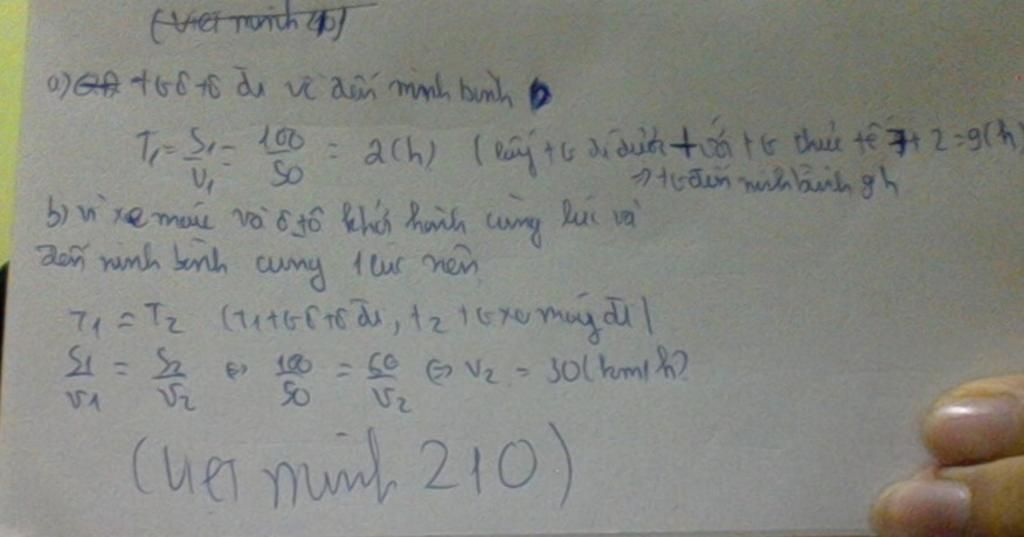 (Viet minh 210)
a) tG ô tô đi về đến ninh bình
T₁ = S₁/V₁ = 100/50 = 2(h) (lấy tG đi được + với tG thức tế 7 + 2 = 9(h)
⇒ tG đến ninh bình 9h
b) vì xe máy và ô tô khởi hành cùng lúc và
đến ninh bình cung 1 lúc nên
T1 = T2 (T1 tG ô tô đi, t2 tG xe máy đi)
S1/V1 = S2/V2 ⇔ 100/50 = 60/V2 ⇔ V2 = 30(km/h)
(Viet minh 210)